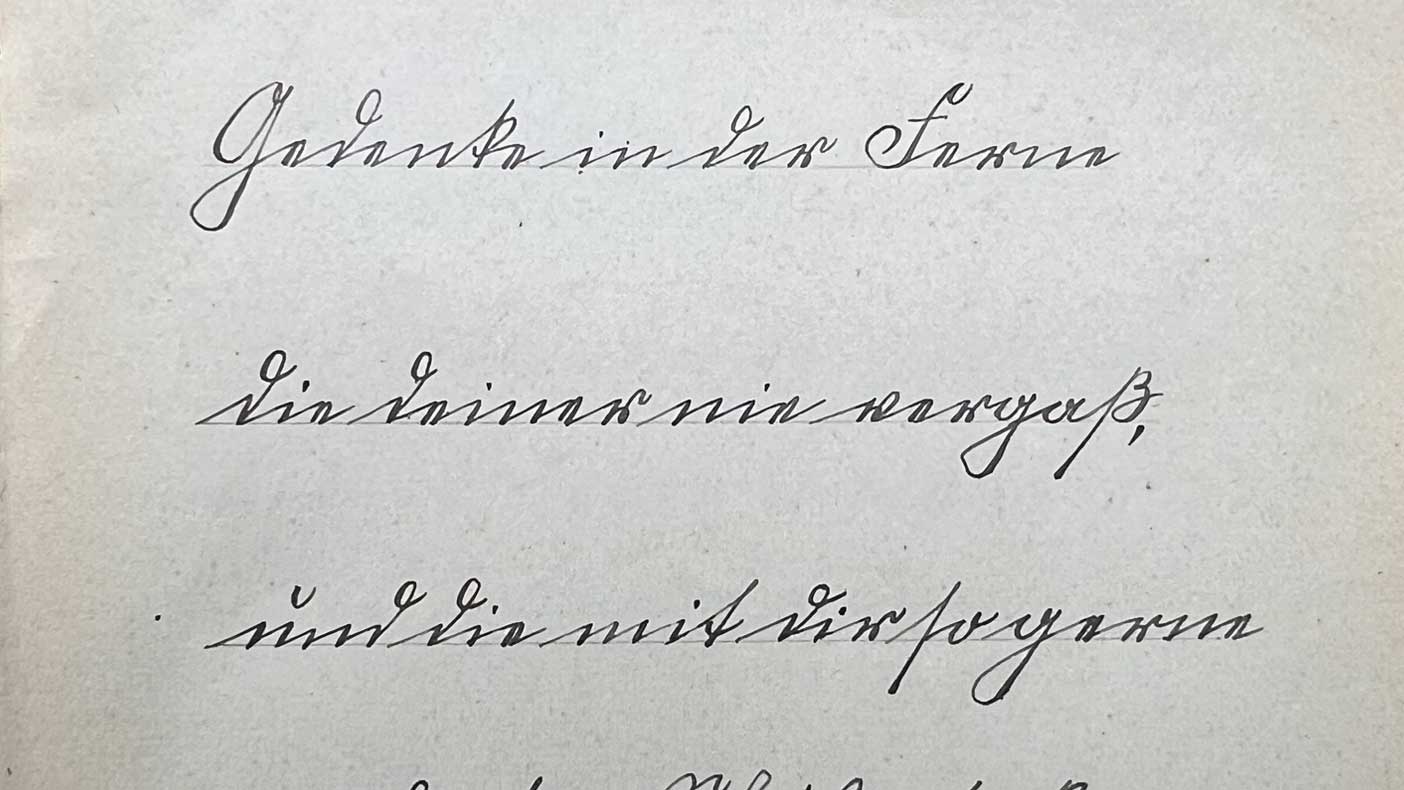 Gedenke in der Ferne
die deiner nie vergaß,
und die mit dir so gerne